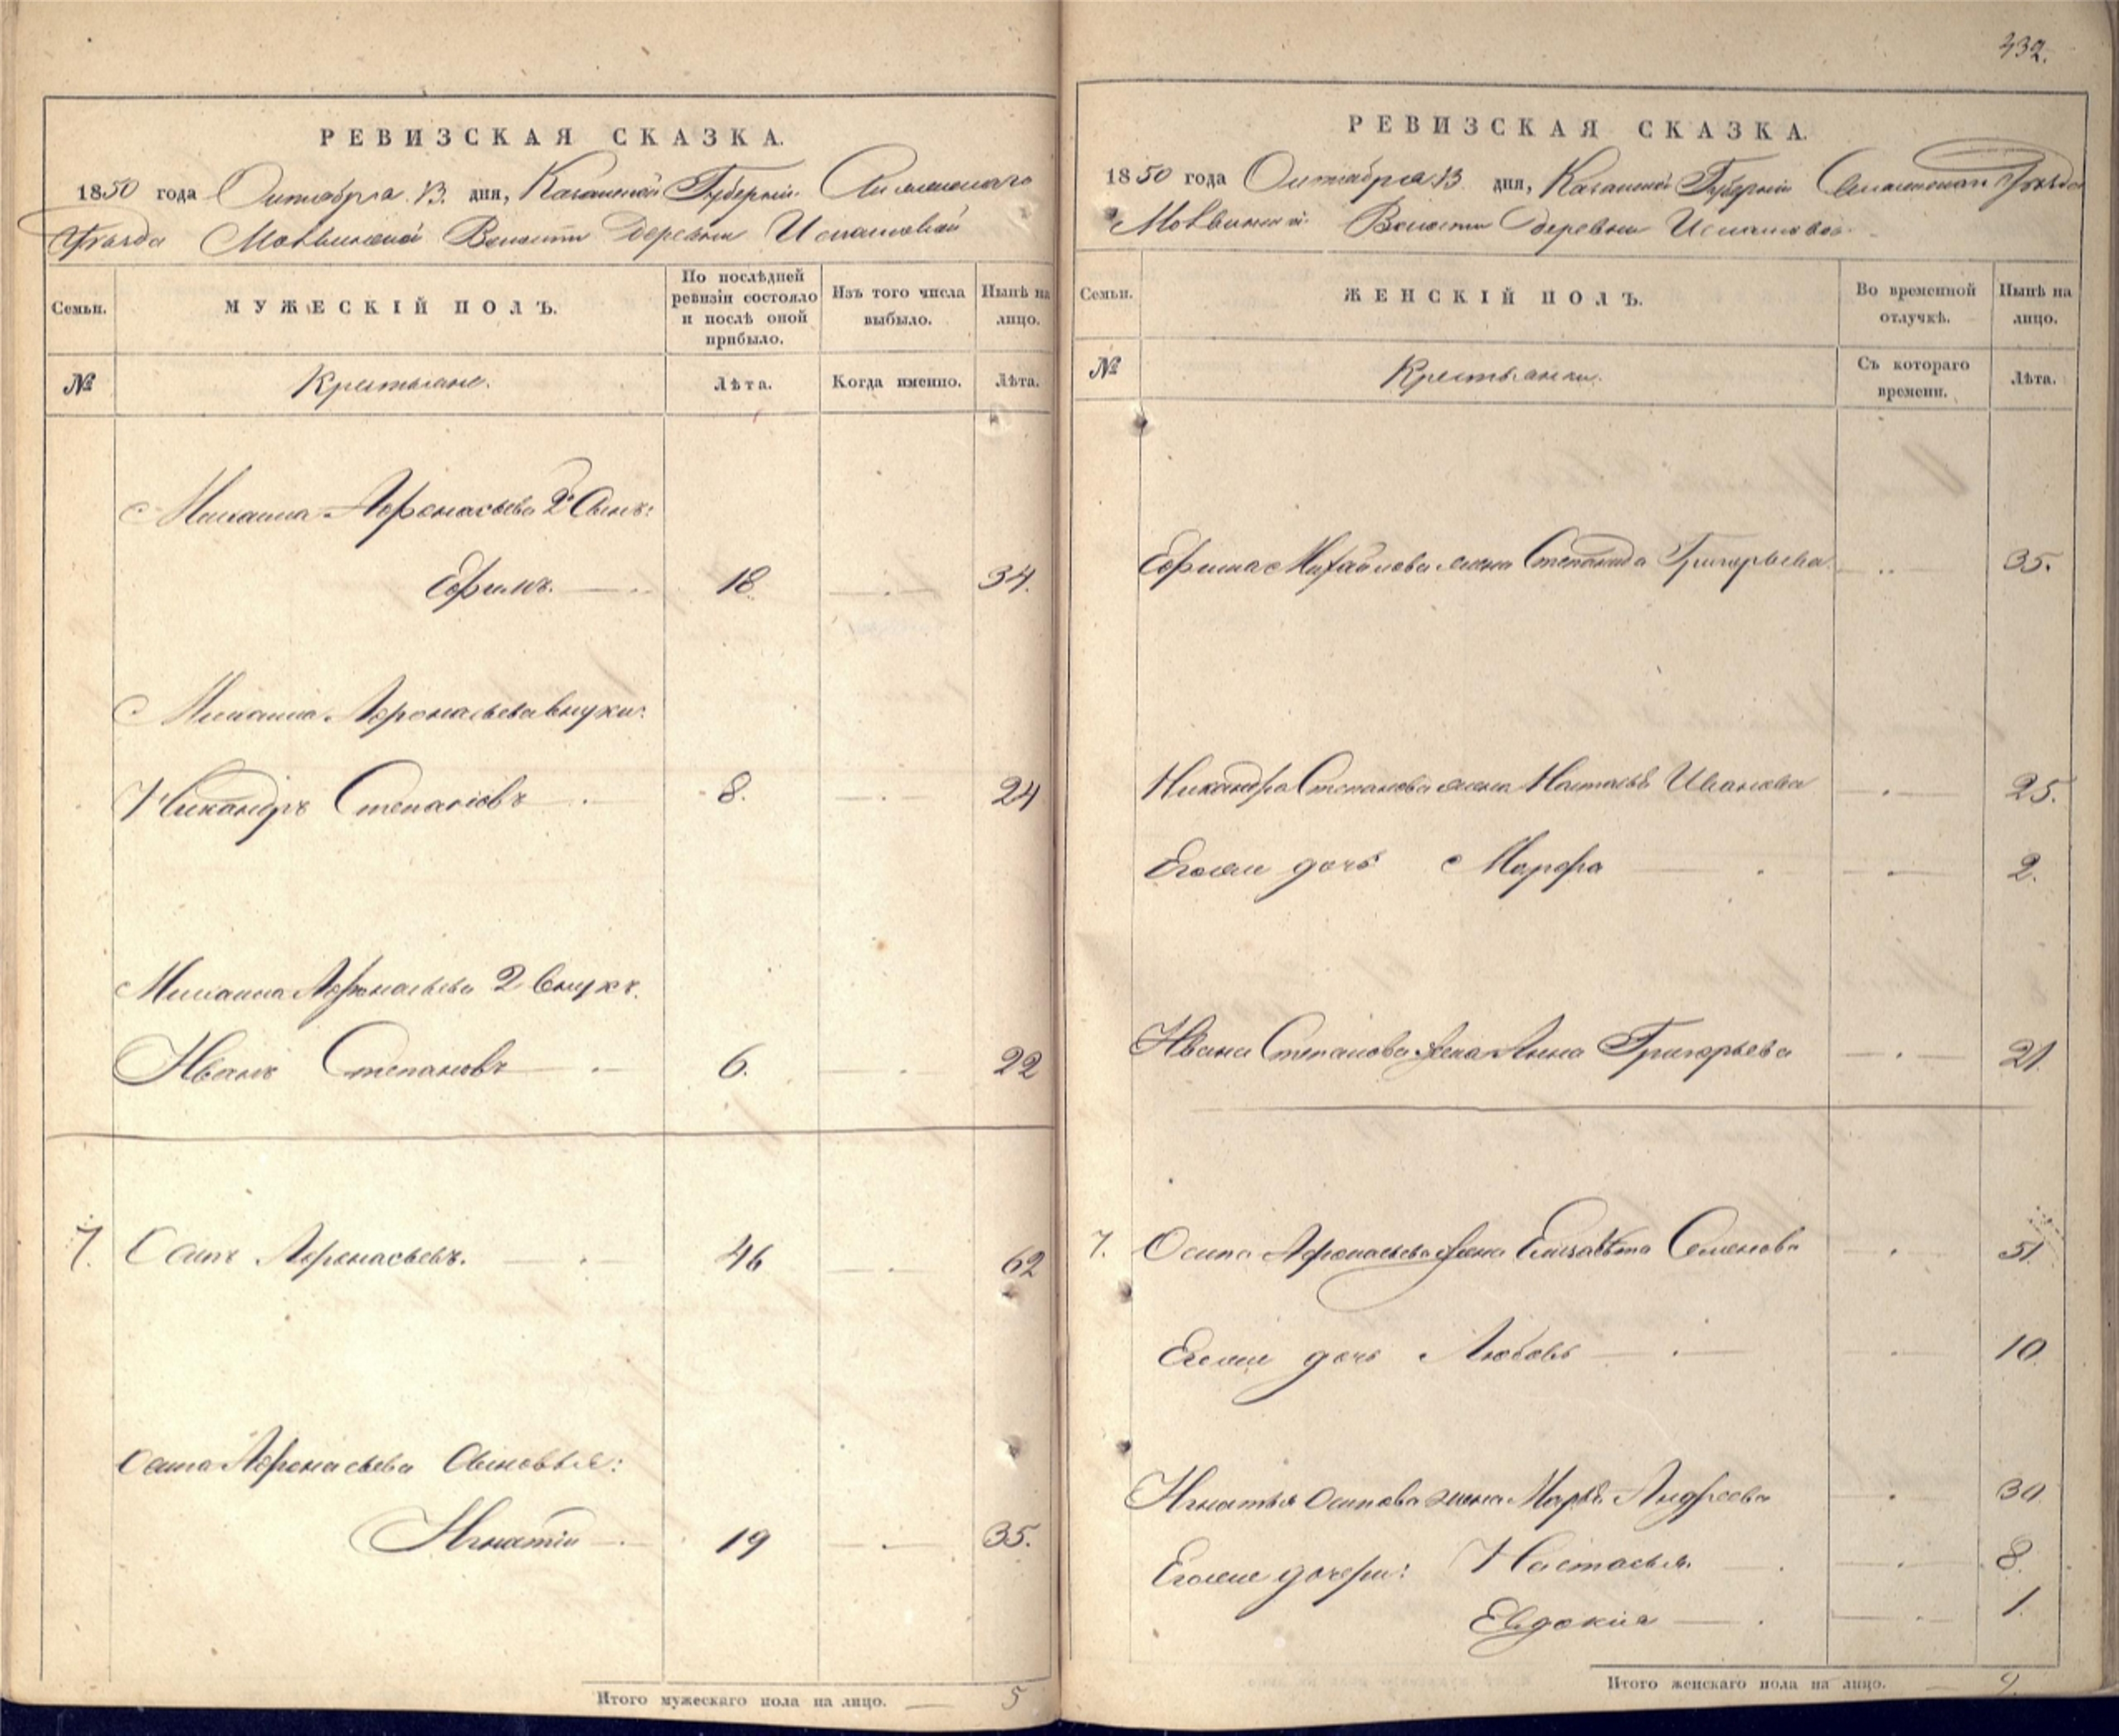 432.
РЕВИЗСКАЯ СКАЗКА.
1850 года Октября 13. дня, Казанской Губерніи
Уѣзда Волости Деревни
Семьи.
МУЖЕСКІЙ ПОЛЪ.
По послѣдней ревизіи состояло и послѣ оной прибыло.
Изъ того числа выбыло.
Нынѣ на лицо.
№
Крестьяне.
Лѣта.
Когда именно.
Лѣта.
Михаила Афонасьева 2й Сынъ:
Ефимъ. 18. 34.
Михаила Афонасьева внуки:
Никандръ Степановъ 8. 24
Михаила Афонасьева 2 внукъ.
Иванъ Степановъ 6. 22
7. Осипъ Афонасьевъ. 46 62
Осипа Афонасьева Сыновья:
Игнатій 19 35.
Итого мужескаго пола на лицо. 5
РЕВИЗСКАЯ СКАЗКА.
1850 года Октября 13 дня, Казанской Губерніи Уѣзда
Волости Деревни
Семьи.
ЖЕНСКІЙ ПОЛЪ.
Во временной отлучкѣ.
Нынѣ на лицо.
№
Крестьянки.
Съ котораго времени.
Лѣта.
Ефима Михайлова жена Степанида Григорьева 35.
Никандра Степанова жена Настасья Иванова 25.
Егоже дочь Марфа 2.
Ивана Степанова жена Анна Григорьева 21.
7. Осипа Афонасьева жена Елизавета Семенова 51.
Егоже дочь Любовь 10.
Игнатья Осипова жена Марья Андреева 30.
Егоже дочери: Настасья. 8.
Евдокия 1.
Итого женскаго пола на лицо. 9.